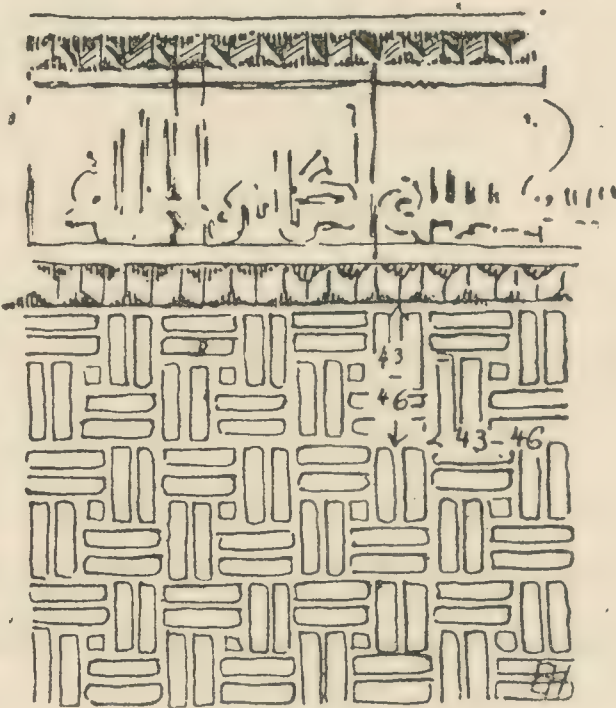 43
-
46
43-46
EH